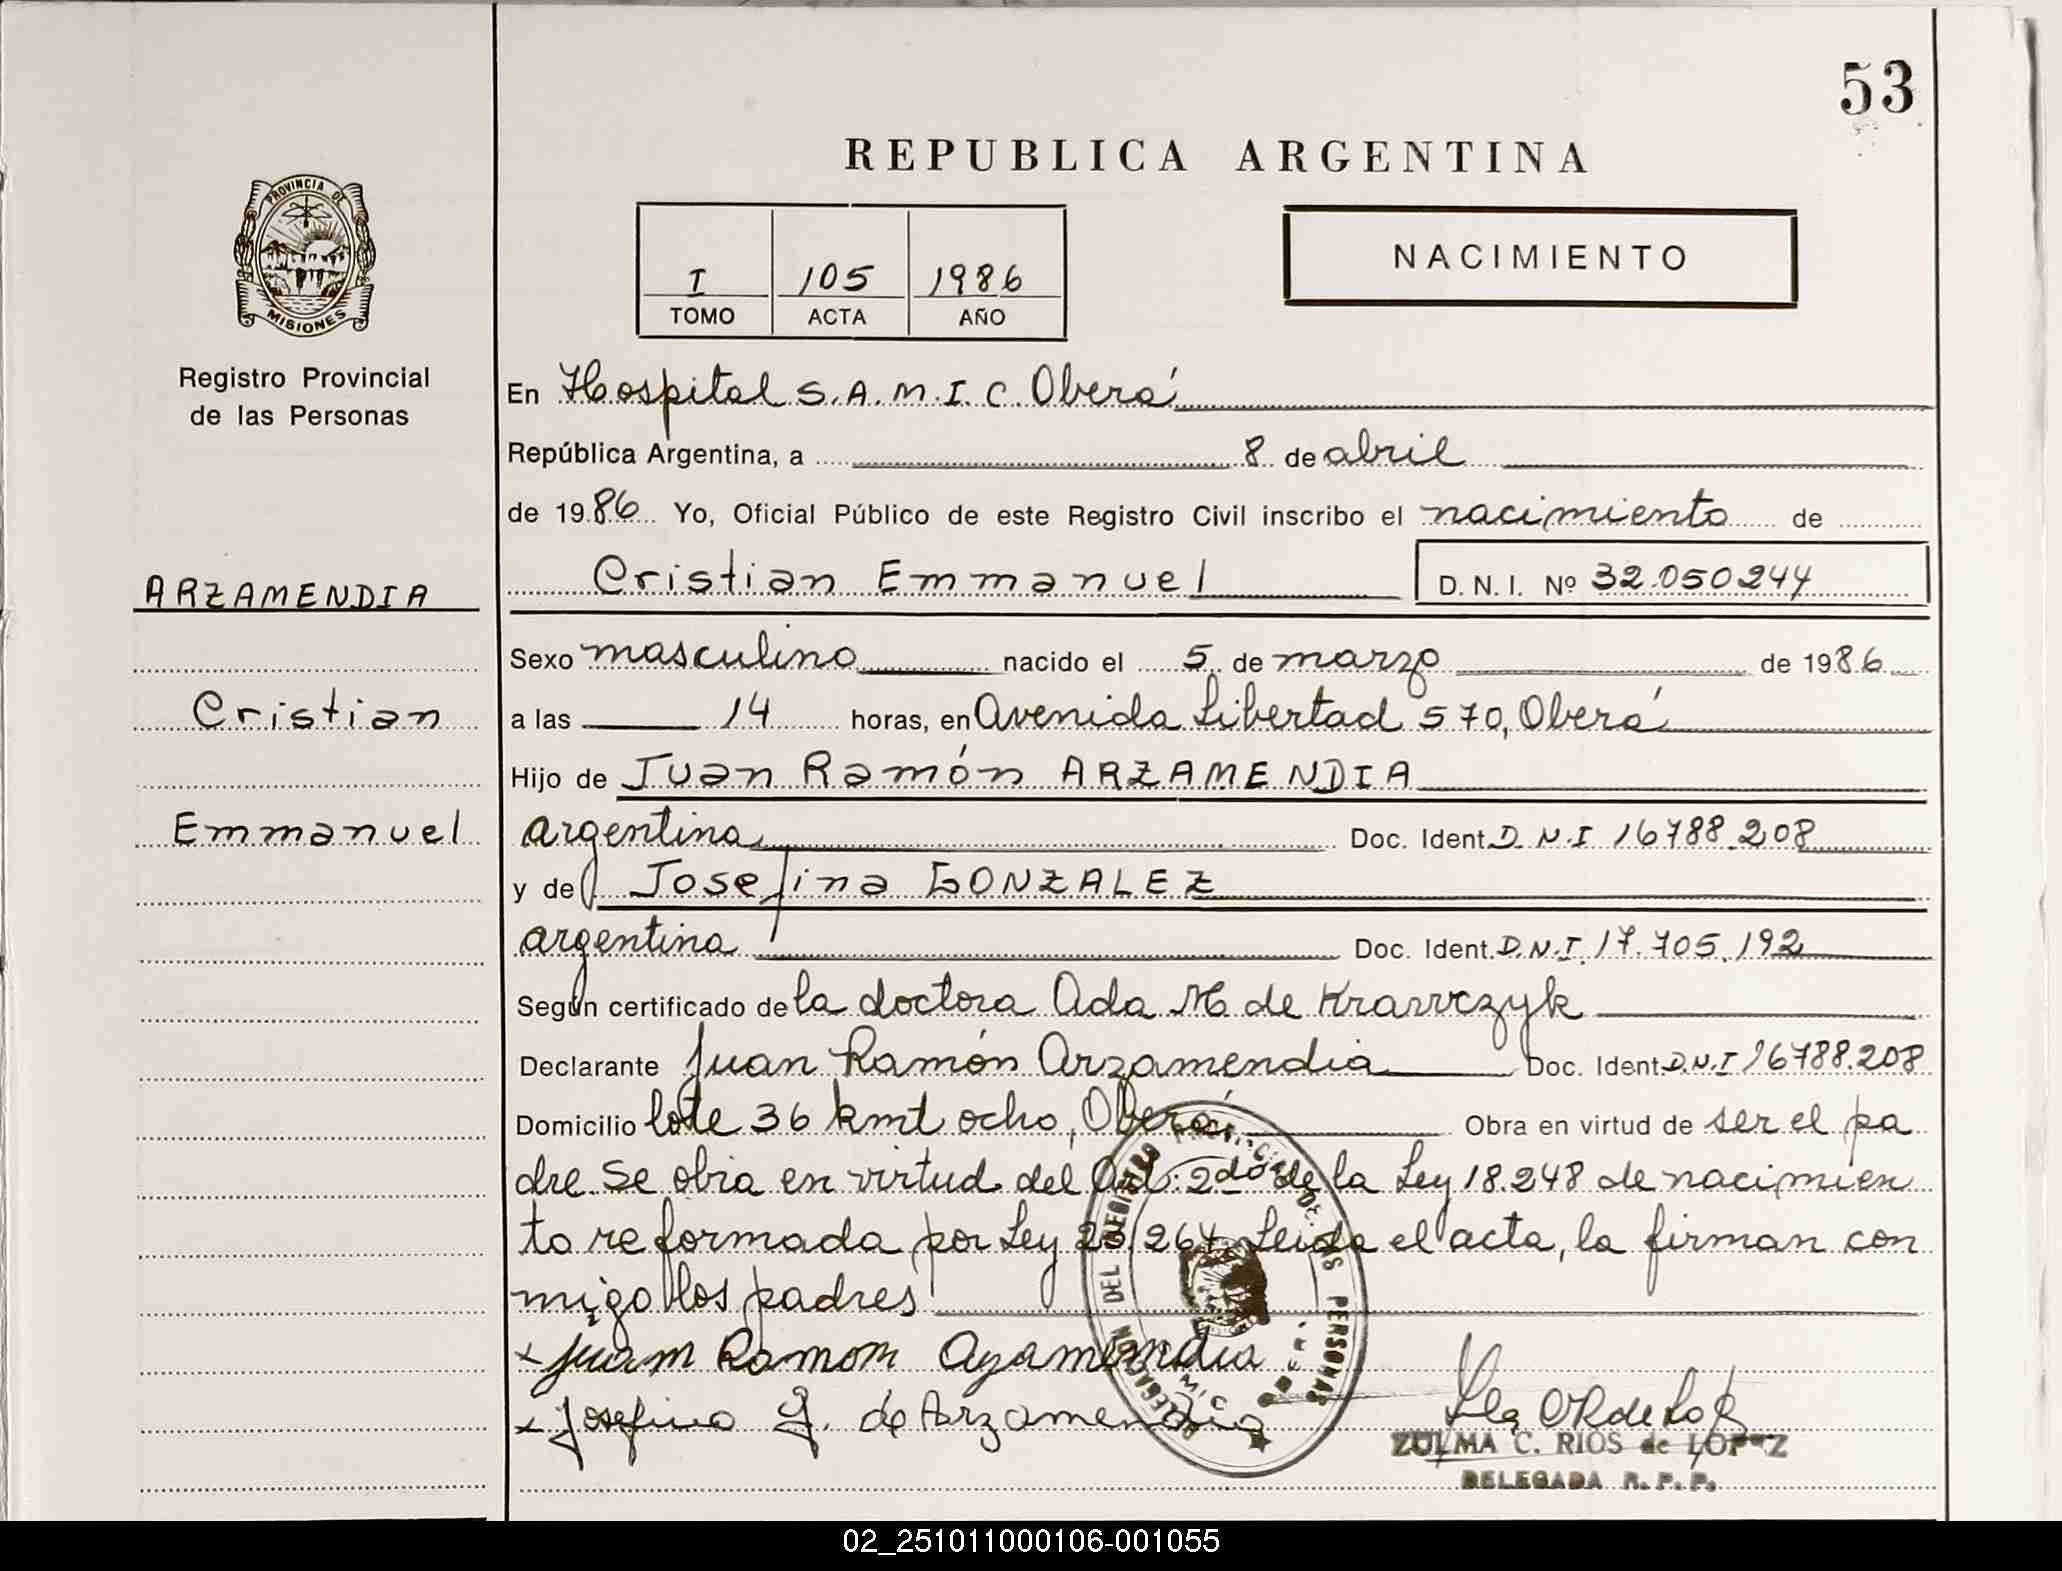 53
REPUBLICA ARGENTINA
PROVINCIA DE
MISIONES
Registro Provincial
de las Personas
I 105 1986
TOMO ACTA AÑO
NACIMIENTO
En Hospital S.A.M.I.C. Oberá
República Argentina, a 8 de abril
de 1986 Yo, Oficial Público de este Registro Civil inscribo el nacimiento de
ARZAMENDIA
Cristian Emmanuel D.N.I. Nº 32.050.244
Sexo masculino nacido el 5 de marzo de 1986
Cristian
a las 14 horas, en Avenida Libertad 570, Oberá
Hijo de Juan Ramón ARZAMENDIA
Emmanuel
argentina Doc. Ident. D.N.I 16788.208
y de Josefina GONZALEZ
argentina Doc. Ident. D.N.I. 17.705.192
Según certificado de la doctora Ada M. de Krawczyk
Declarante Juan Ramón Arzamendia Doc. Ident. D.N.I 16788.208
Domicilio lote 36 kmt ocho, Oberá Obra en virtud de ser el pa
dre. Se obra en virtud del Art. 2do de la Ley 18.248 de nacimien
to reformada por Ley 23.264. Leída el acta, la firman con
migo los padres
x Juam Ramom Azamendia
x Josefina G. de Arzamendia
DELEGACION DEL REGISTRO PROVINCIAL DE LAS PERSONAS
ZULMA C. RIOS de LOPEZ
DELEGADA R.P.P.
02_251011000106-001055